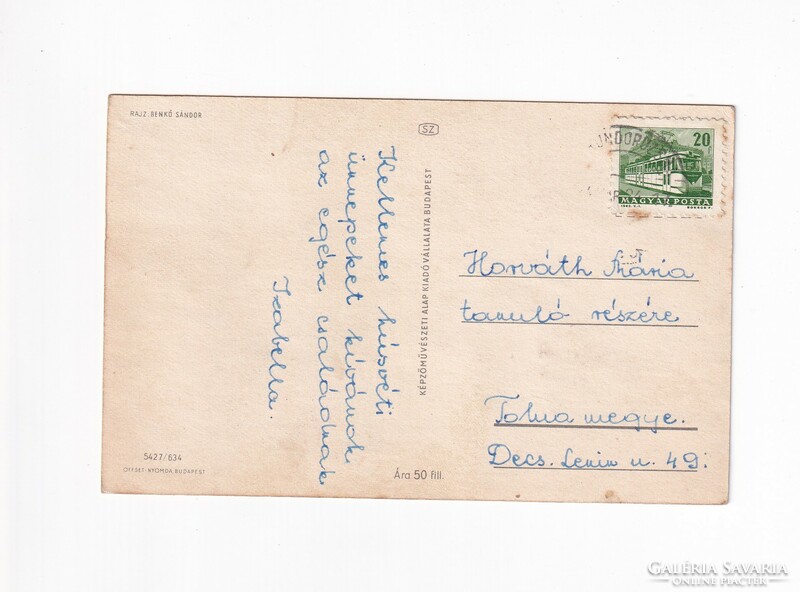 RAJZ: BENKŐ SÁNDOR
SZ
Kellemes húsvéti
ünnepeket kívánok
az egész családnak
Izabella.
5427/634
OFFSET-NYOMDA, BUDAPEST
KÉPZŐMŰVÉSZETI ALAP KIADÓVÁLLALATA BUDAPEST
Ára 50 fill.
20
MAGYAR POSTA
Horváth Mária
tanuló részére
Tolna megye.
Decs. Lenin u. 49.
GALÉRIA SAVARIA
ONLINE PIACTÉR